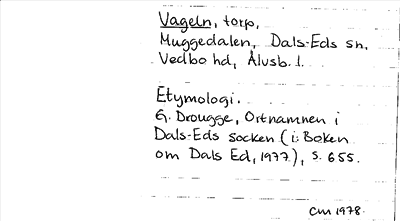 Vageln, torp,
Muggedalen, Dals-Eds sn,
Vedbo hd, Älvsb. l.
Etymologi.
G. Drougge, Ortnamnen i
Dals-Eds socken (i: Boken
om Dals Ed, 1977), s. 655.
CM 1978.